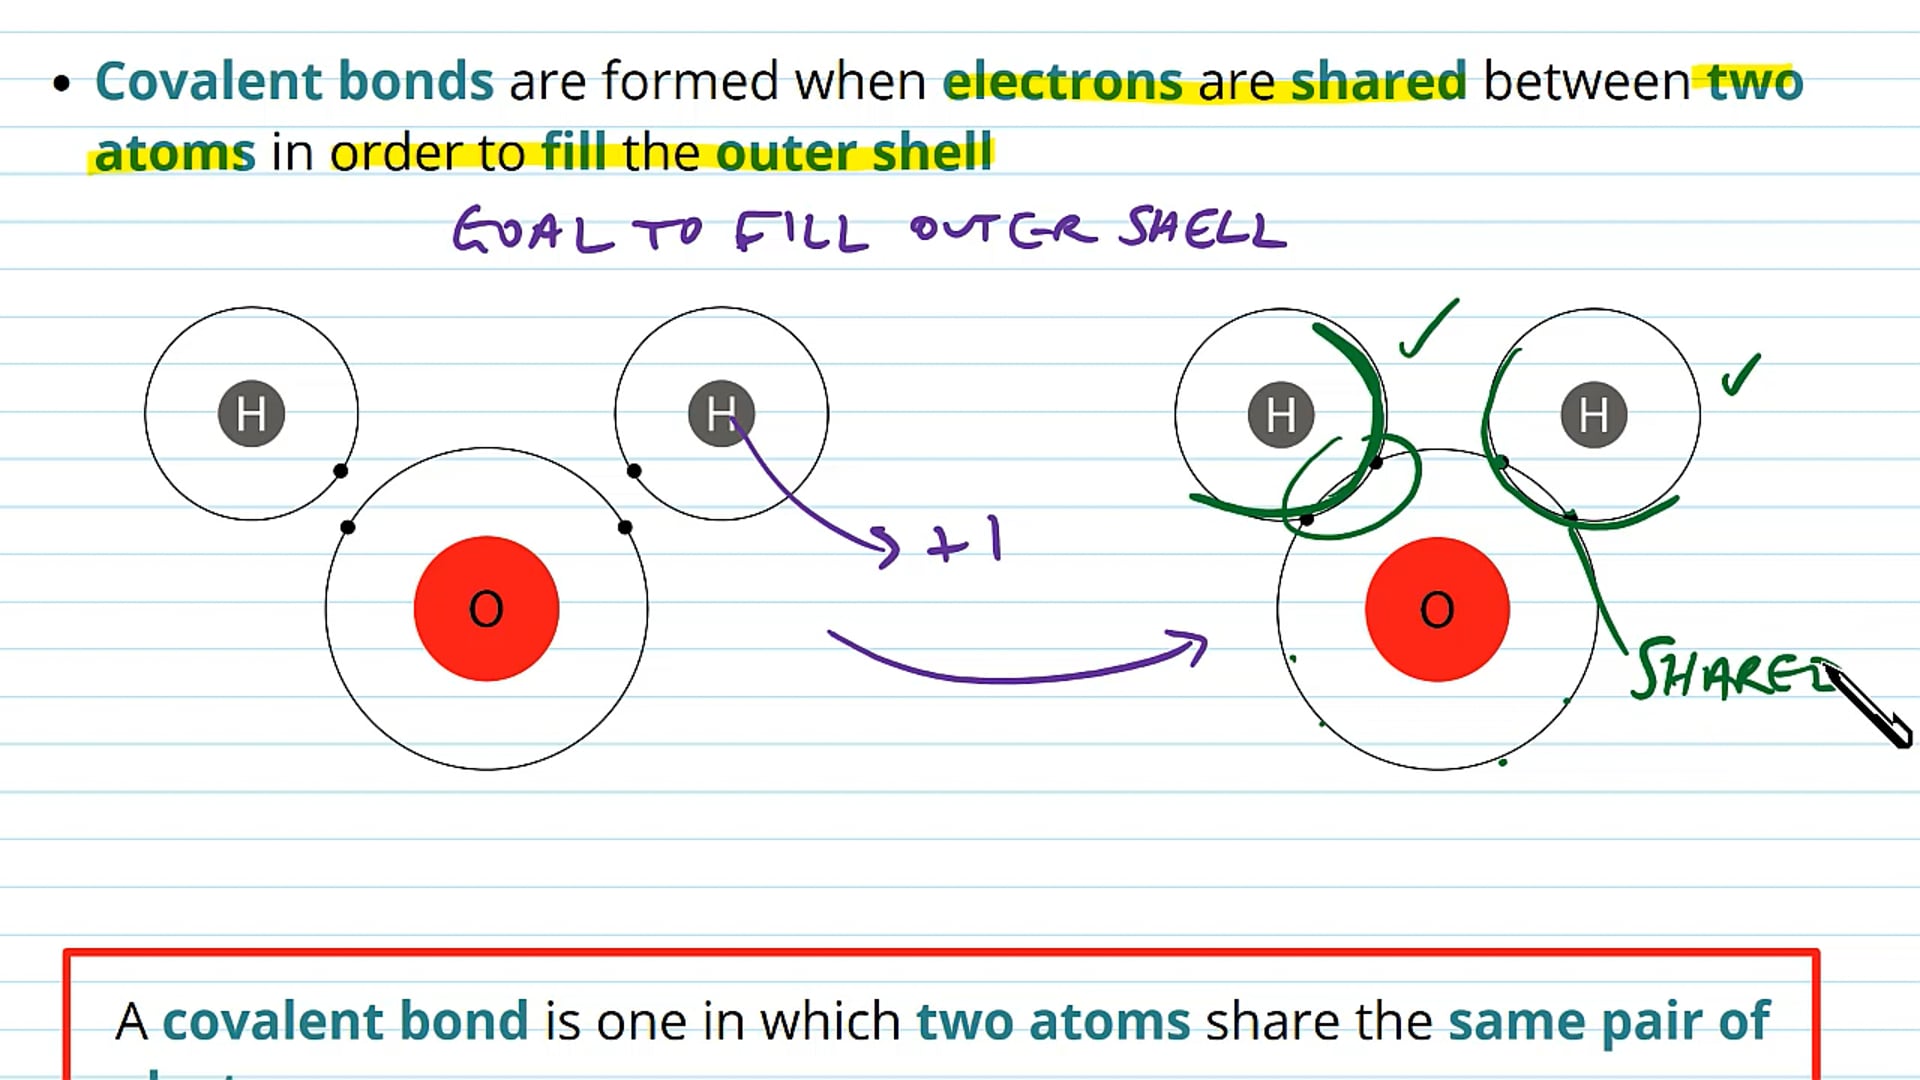 • Covalent bonds are formed when electrons are shared between two
atoms in order to fill the outer shell
GOAL TO FILL OUTER SHELL
H H H H
+1
O O
SHARED
A covalent bond is one in which two atoms share the same pair of